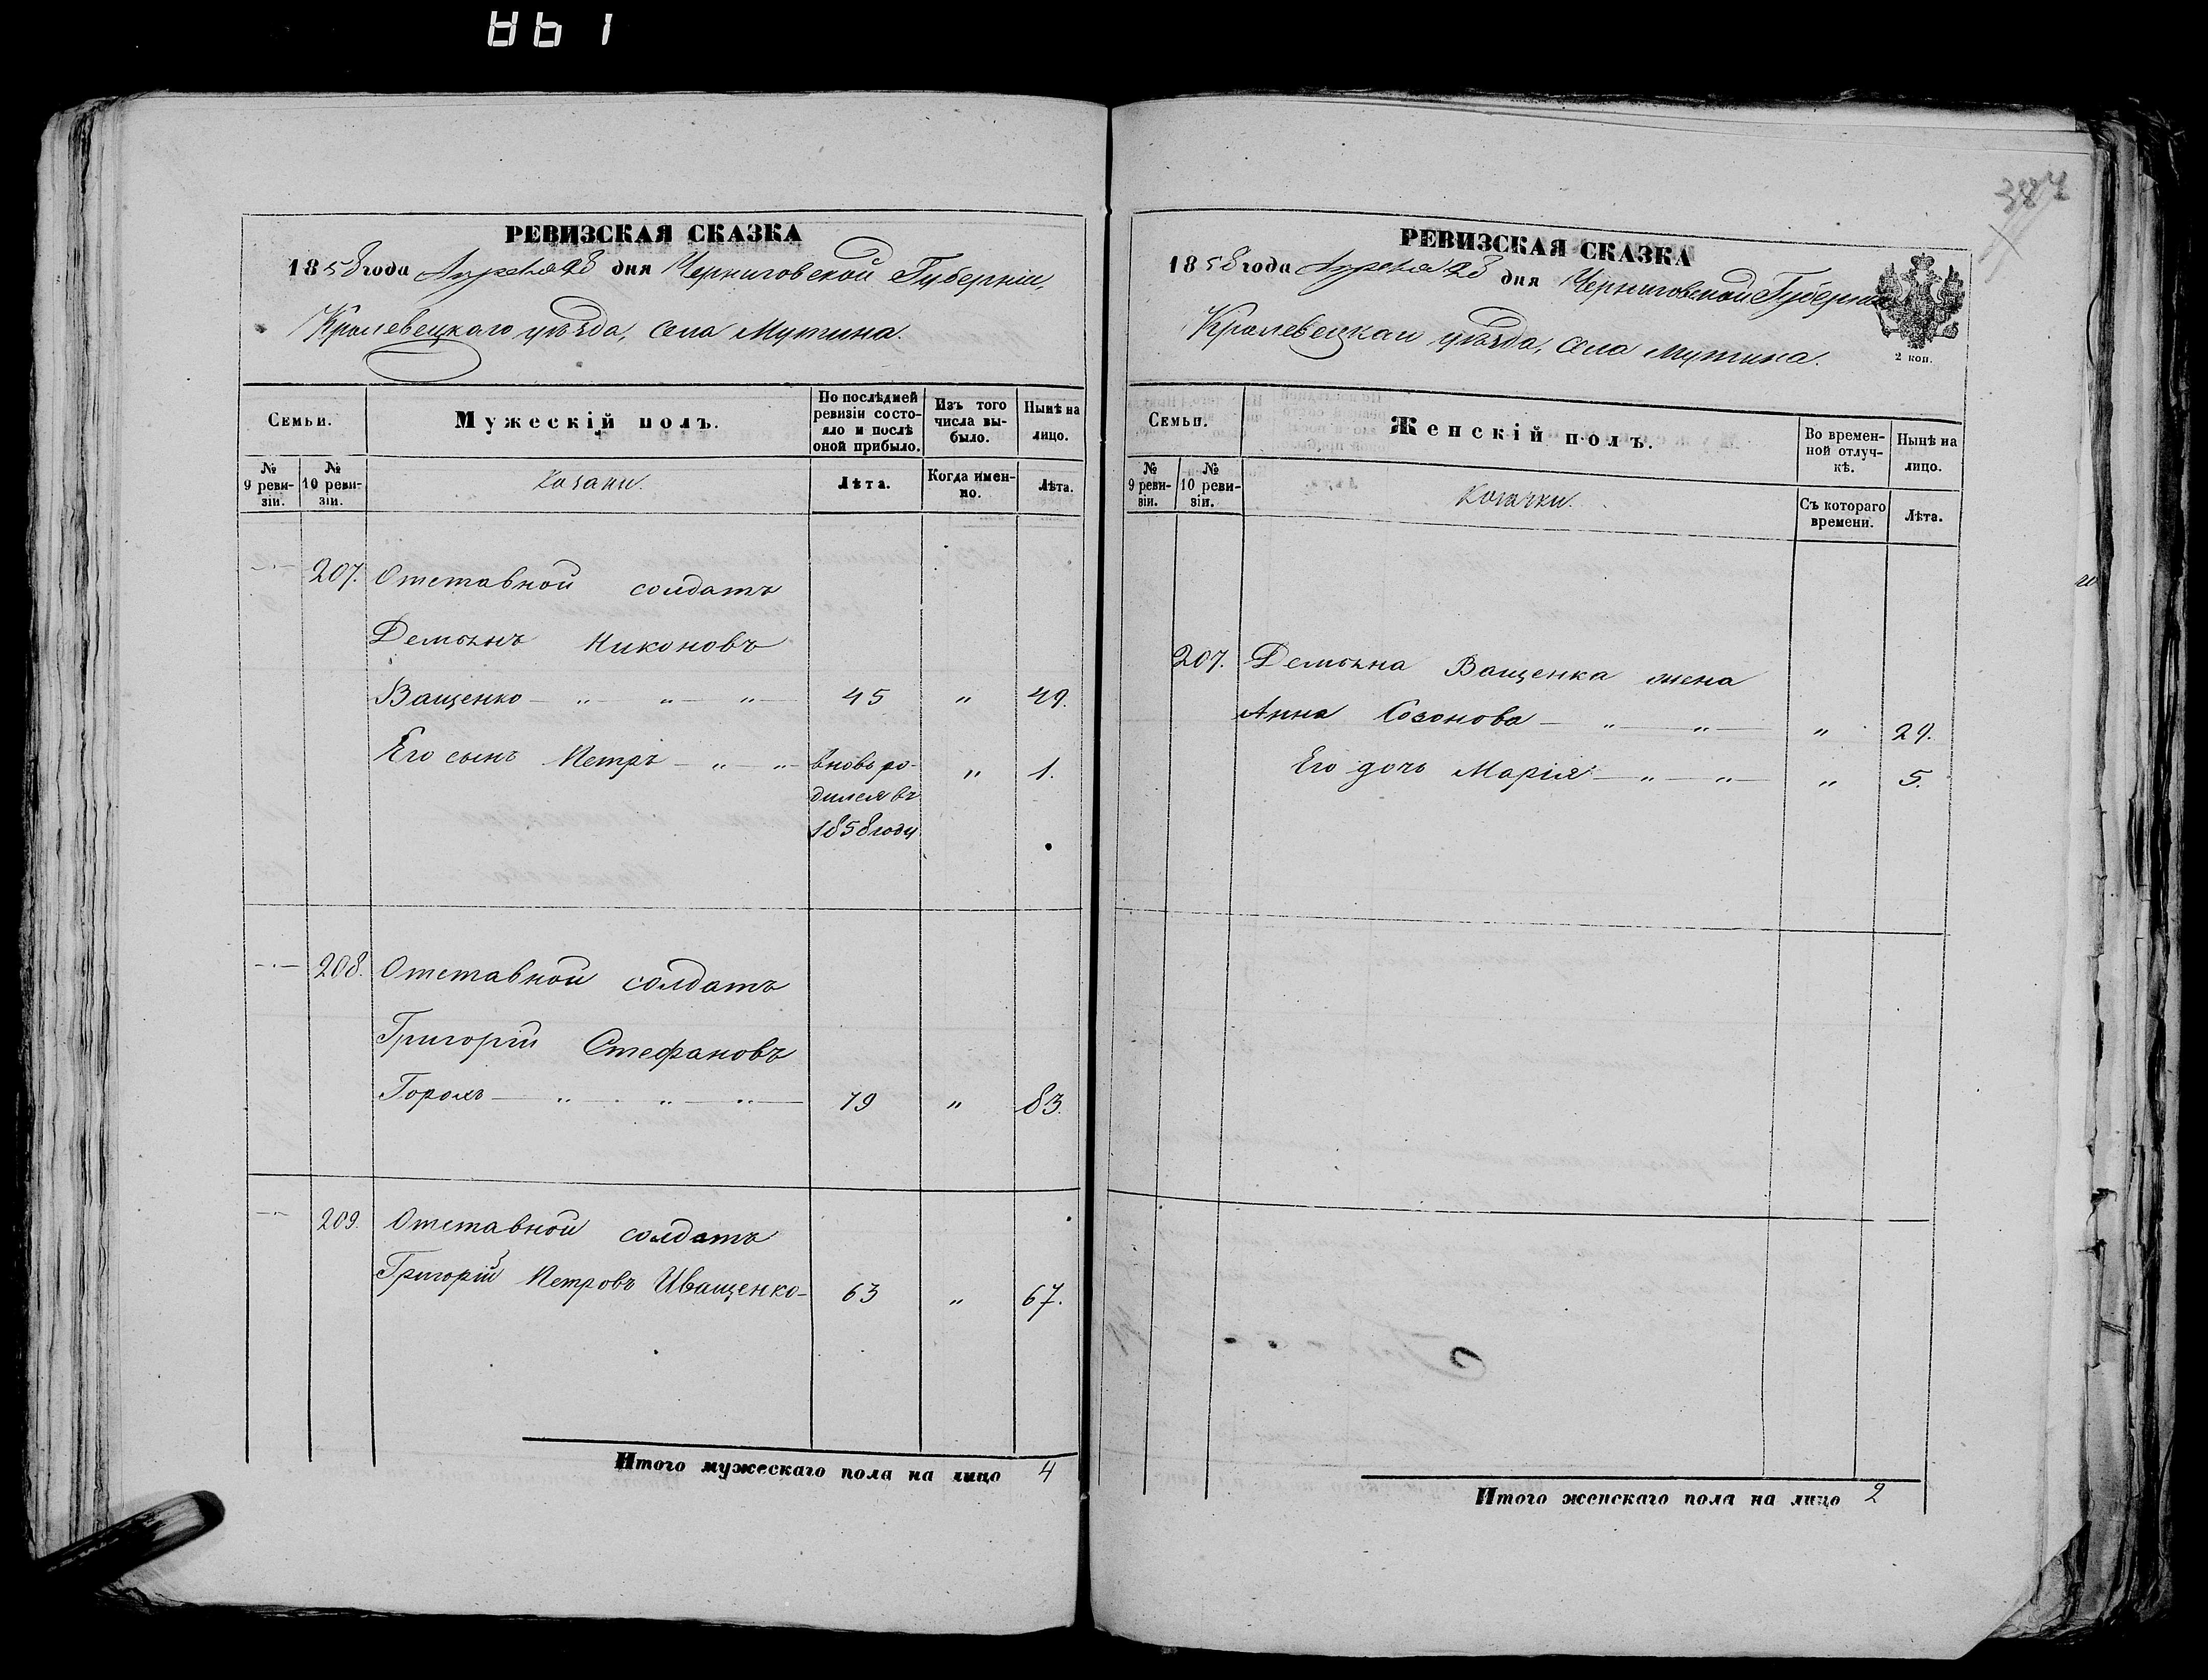 861
РЕВИЗСКАЯ СКАЗКА
1858 года Апреля 28 дня Черниговской Губерніи,
Кролевецкаго уѣзда, села Мутина.
Семьи.
Мужескій полъ.
По послѣдней ревизіи состояло и послѣ оной прибыло.
Изъ того числа выбыло.
Нынѣ на лицо.
№ 9 ревизіи.
№ 10 ревизіи.
Козаки.
Лѣта.
Когда именно.
Лѣта.
207. Отставной солдатъ
Демьянъ Никоновъ
Ващенко — „ — „ — „ — 45 „ 49.
Его сынъ Петръ — „ — „ — вновь ро- „ 1.
дился въ
1858 году
208. Отставной солдатъ
Григорій Стефановъ
Горохъ — „ — „ — „ — 79 „ 83.
209. Отставной солдатъ
Григорій Петровъ Иващенко — 63 „ 67.
Итого мужескаго пола на лицо 4
387
РЕВИЗСКАЯ СКАЗКА
1858 года Апреля 28 дня Черниговской Губерніи
Кролевецкаго уѣзда, села Мутина.
2 коп.
Семьи.
Женскій полъ.
Во временной отлучкѣ.
Нынѣ на лицо.
№ 9 ревизіи.
№ 10 ревизіи.
Козачки.
Съ котораго времени.
Лѣта.
207. Демьяна Ващенка жена
Анна Созонова — „ — „ — „ 29.
Его дочь Марія — „ — „ — „ 5.
Итого женскаго пола на лицо 2